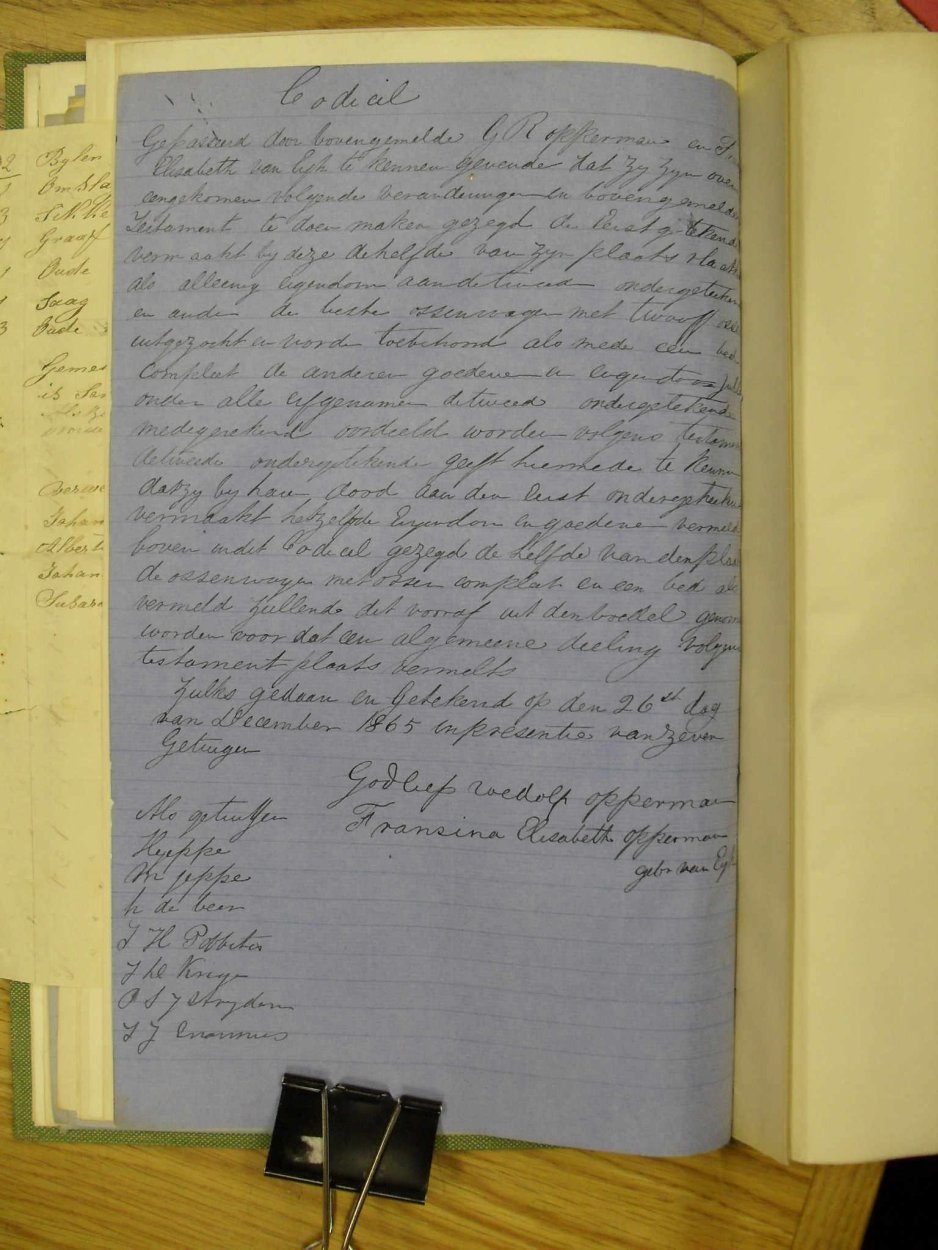 Codicil
Gepasseerd door bovengemelde G R opperman en F.
Elisabeth van Eyk te kennen gevende dat zy zyn over
eengekomen volgende veranderingen in bovengemelde
Testament te doen maken gezegd de Eerst getekende
vermaakt by deze de helfde van zyn plaats
als alleenig eigendom aan de tweede ondergeteeken
en ander de beste ossenwagen met twaalf osse
uitgezocht worde toebehoord als mede een bed
Compleet de anderen goederen
onder alle erfgenamen de tweede ondergetekende
medegerekend verdeeld worden volgens testament
de tweede ondergetekende geeft hiermede te kennen
dat zy by haar dood aan den Eerst ondergetekende
vermaakt hetzelfde Eigendom en goederen vermeld
boven in dit Codicil gezegd de helfde van den plaas
de ossenwagen met ossen compleet en een bed als
vermeld zullende dit vooraf uit den boedel genom
worden voor dat een algemeene deeling volgens
testament plaats
Zulks gedaan en Getekend op den 26st dag
van December 1865 in presentie van Zeven
Getuigen
Godlief redolf opperman
Fransina Elisabeth opperman
gebr van Eyk
Als getuigen
H jeppe
Wm jeppe
h de beer
J H
J H Krige
P S J Strydom
J J
2
3
3
Bylen
Omsla
Graaf
Oude
Saag
Oude
Gemes
is San
Johan
Albert
Johan
Susann